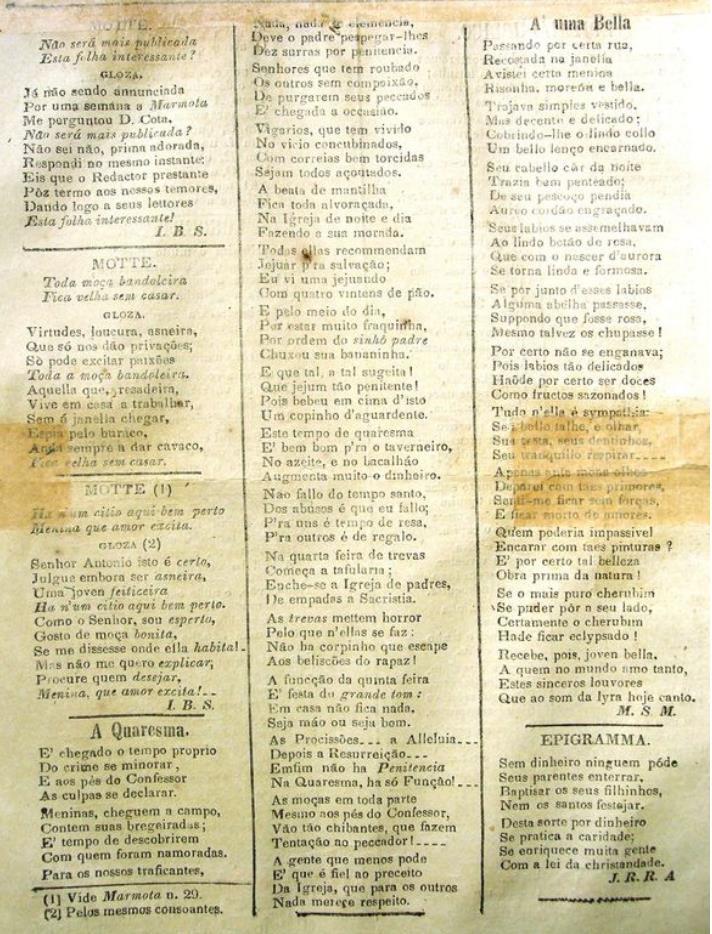 MOTTE.
Não será mais publicada
Esta folha interessante?
GLOZA.
Já não sendo annunciada
Por uma semana a Marmota
Me perguntou D. Cota,
Não será mais publicada?
Não sei não, prima adorada,
Respondi no mesmo instante:
Eis que o Redactor prestante
Pôz termo aos nossos temores,
Dando logo a seus leitores
Esta folha interessante!
I. B. S.
MOTTE.
Toda moça bandoleira
Fica velha sem casar.
GLOZA.
Virtudes, loucura, asneira,
Que só nos dão privações;
Só pode excitar paixões
Toda a moça bandoleira.
Aquella que, resadeira,
Vive em casa a trabalhar,
Sem á janella chegar,
Espia pelo buraco,
Anda sempre a dar cavaco,
Fica velha sem casar.
MOTTE (1)
Ha n'um citio aqui bem perto
Menina que amor excita.
GLOZA (2)
Senhor Antonio isto é certo,
Julgue embora ser asneira,
Uma joven feiticeira
Ha n'um citio aqui bem perto.
Como o Senhor, sou esperto,
Gosto de moça bonita,
Se me dissesse onde ella habita!..
Mas não me quero explicar,
Procure quem desejar,
Menina, que amor excita!...
I. B. S.
A Quaresma.
E' chegado o tempo proprio
Do crime se minorar,
E aos pés do Confessor
As culpas se declarar.
Meninas, cheguem a campo,
Contem suas bregeiradas;
E' tempo de descobrirem
Com quem foram namoradas.
Para os nossos traficantes,
(1) Vide Marmota n. 29.
(2) Pelos mesmos consoantes.
Nada, nada de clemencia,
Deve o padre pespegar-lhes
Dez surras por penitencia.
Senhores que tem roubado
Os outros sem compaixão,
De purgarem seus peccados
E' chegada a occasião.
Vigarios, que tem vivido
No vicio concubinados,
Com correias bem torcidas
Sejam todos açoutados.
A beata de mantilha
Fica toda alvoraçada,
Na Igreja de noite e dia
Fazendo a sua morada.
Todas ellas recommendam
Jejuar p'ra salvação;
Eu vi uma jejuando
Com quatro vintens de pão.
E pelo meio do dia,
Por estar muito fraquinha,
Por ordem do sinhô padre
Chuxou sua bananinha.
E que tal, a tal sugeita!
Que jejum tão penitente!
Pois bebeu em cima d'isto
Um copinho d'aguardente.
Este tempo de quaresma
E' bem bom p'ra o taverneiro,
No azeite, e no bacalhão
Augmenta muito o dinheiro.
Nao fallo do tempo santo,
Dos abusos é que eu fallo;
P'ra uns é tempo de resa,
P'ra outros é de regalo.
Na quarta feira de trevas
Começa a tafularia;
Enche-se a Igreja de padres,
De empadas a Sacristia.
As trevas mettem horror
Pelo que n'ellas se faz:
Não ha corpinho que escape
Aos beliscões do rapaz!
A funcção da quinta feira
E' festa do grande tom:
Em casa não fica nada,
Seja máo ou seja bom.
As Procissões... a Alleluia...
Depois a Resurreição...
Emfim não ha Penitencia
Na Quaresma, ha só Funcção!...
As moças em toda parte
Mesmo aos pés do Confessor,
Vão tão chibantes, que fazem
Tentação ao peccador!....
A gente que menos pode
E' que é fiel ao preceito
Da Igreja, que para os outros
Nada merece respeito.
A' uma Bella
Passando por certa rua,
Recostada na janella
Avistei certa menina
Risonha, morena e bella.
Trajava simples vestido,
Mas decente e delicado;
Cobrindo-lhe o lindo collo
Um bello lenço encarnado.
Seu cabello côr da noite
Trazia bem penteado;
De seu pescoço pendia
Aureo cordão engraçado.
Seus labios se assemelhavam
Ao lindo botão de rosa,
Que com o nascer d'aurora
Se torna linda e formosa.
Se por junto d'esses labios
Alguma abelha passasse,
Suppondo que fosse rosa,
Mesmo talvez os chupasse!
Por certo não se enganava;
Pois labios tão delicados
Haõde por certo ser doces
Como fructos sazonados!
Tudo n'ella é sympathia:
Seu bello talhe, e olhar,
Sua testa, seus dentinhos,
Seu tranquilo respirar....
Apenas ante meus olhos
Deparei com taes primores,
Senti-me ficar sem forças,
E ficar morto de amores.
Quem poderia impassivel
Encarar com taes pinturas?
E' por certo tal belleza
Obra prima da natura!
Se o mais puro cherubim
Se puder pôr a seu lado,
Certamente o cherubim
Hade ficar eclypsado!
Recebe, pois, joven bella,
A quem no mundo amo tanto,
Estes sinceros louvores
Que ao som da lyra hoje canto.
M. S. M.
EPIGRAMMA.
Sem dinheiro ninguem póde
Seus parentes enterrar,
Baptisar os seus filhinhos,
Nem os santos festejar.
Desta sorte por dinheiro
Se pratica a caridade;
Se enriquece muita gente
Com a lei da christandade.
J. R. R. A